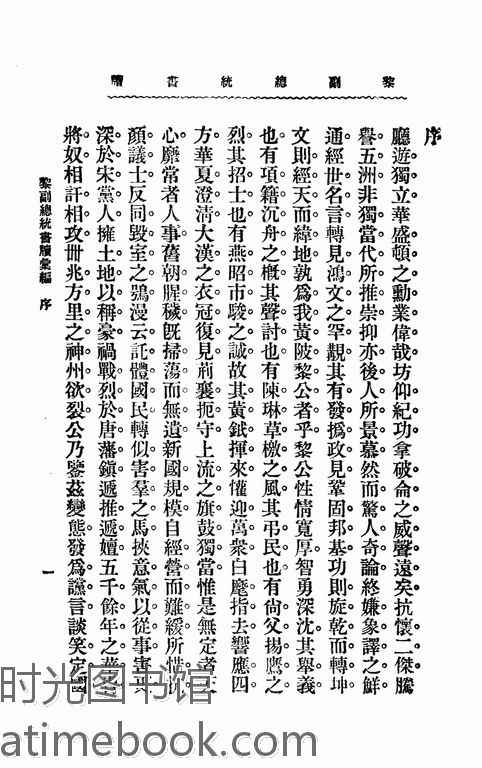 黎副總統書牘
序
廳遊獨立華盛頓之勳業偉哉坊仰紀功拿破侖之威聲遠矣抗懷二傑騰
譽五洲非獨當代所推崇抑亦後人所景慕然而驚人奇論終嫌象譯之鮮
通經世名言轉見鴻文之罕覯其有發撝政見鞏固邦基功則旋乾而轉坤
文則經天而緯地孰爲我黃陂黎公者乎黎公性情寬厚智勇深沈其舉義
也有項籍沉舟之概其聲討也有陳琳草檄之風其弔民也有尙父揚鷹之
烈其招士也有燕昭市駿之誠故其黃鉞揮來懽迎萬衆白麾指去響應四
方華夏澄清大漢之衣冠復見荊襄扼守上流之旗鼓獨當惟是無定者人
心靡常者人事舊朝腥穢旣掃蕩而無遺新國規模自經營而難緩所惜
顏議士反同毀室之鴞漫云託體國民轉似害羣之馬挾意氣以從事害
深於宋黨人擁土地以稱豪禍戰烈於唐藩鎭遞推遞嬗五千餘年之
將奴相訐相攻卌兆方里之神州欲裂公乃鑒茲變態發爲讜言談笑定國
黎副總統書牘彙編 序
一
时光图书馆
atimebook.com